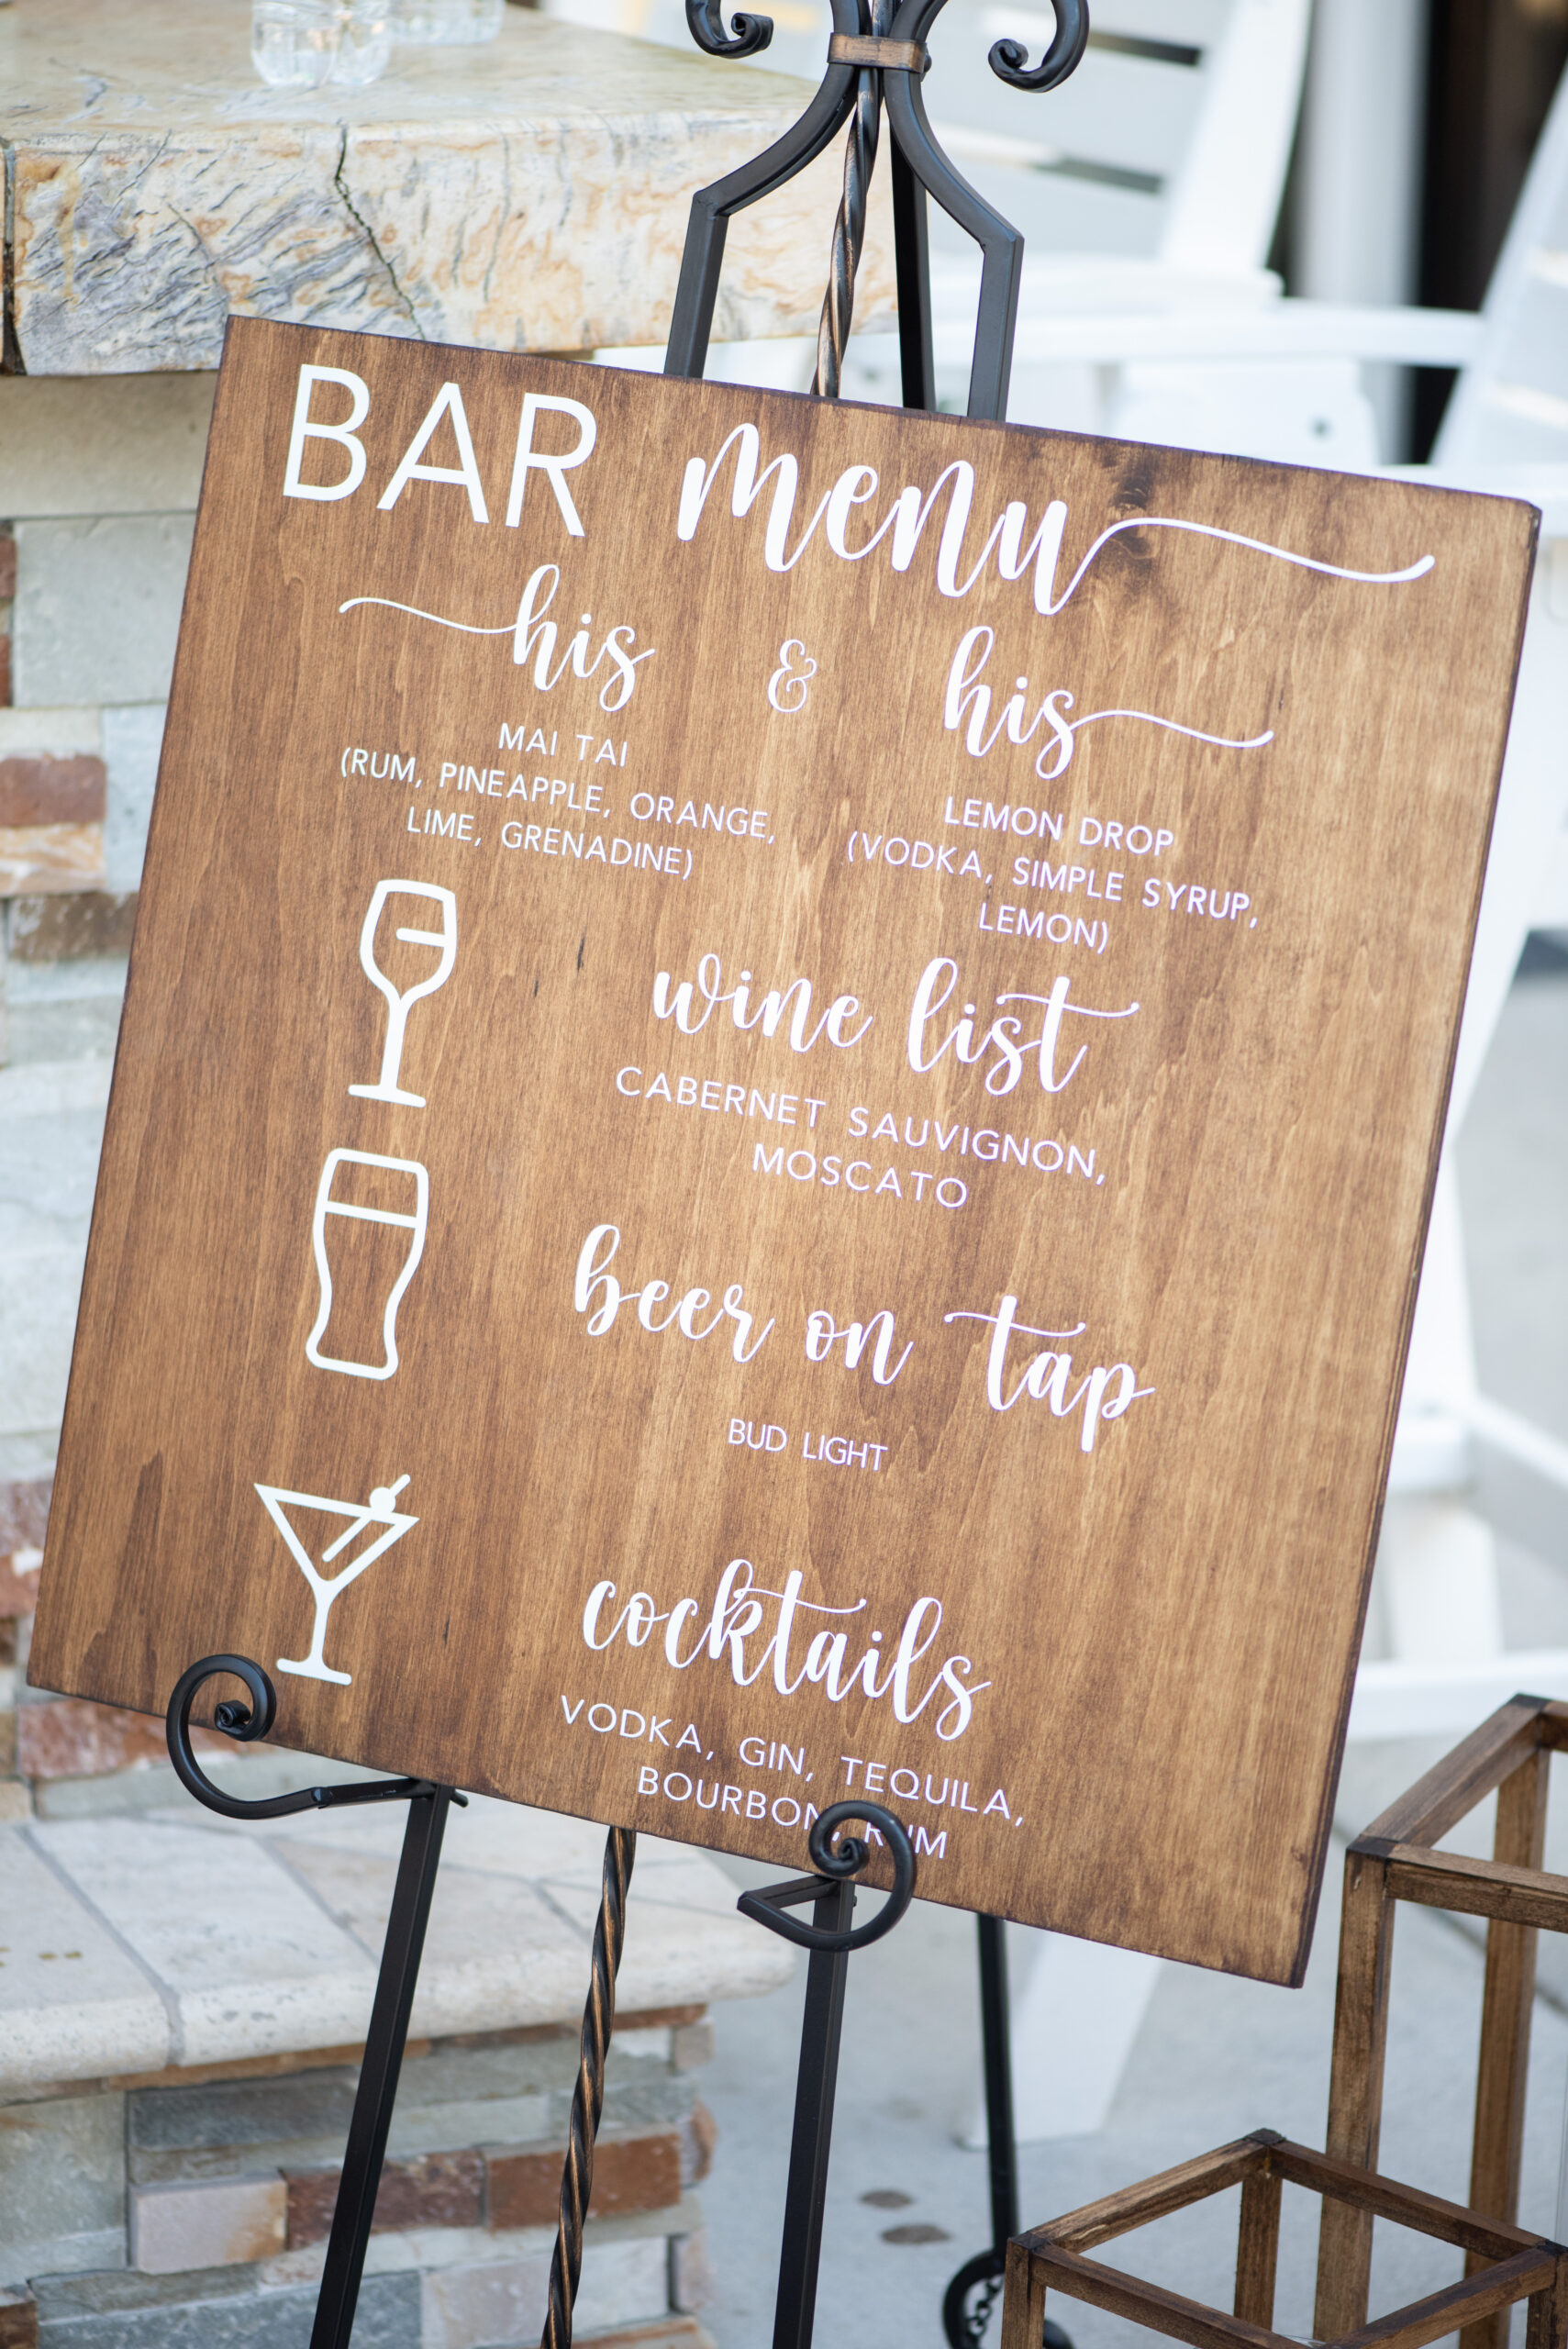 BAR menu
his & his
MAI TAI
(RUM, PINEAPPLE, ORANGE,
LIME, GRENADINE)
LEMON DROP
(VODKA, SIMPLE SYRUP,
LEMON)
wine list
CABERNET SAUVIGNON,
MOSCATO
beer on tap
BUD LIGHT
cocktails
VODKA, GIN, TEQUILA,
BOURBON, RUM